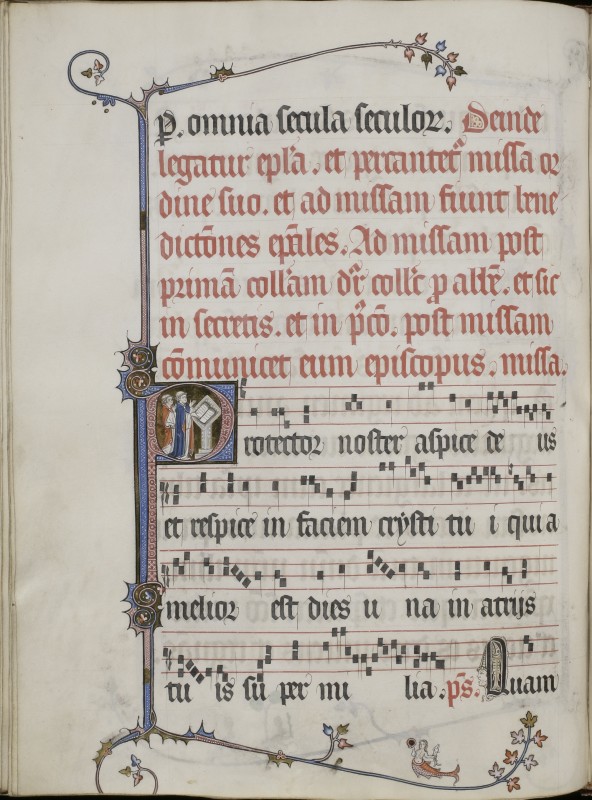 P. omnia secula seculor. Deinde
legatur epl'a. et percantet' missa or
dine suo. et ad missam fiunt bene
dictōnes ep̄ales. Ad missam post
primā coll'am dr̄ coll'c p alt'r. et sic
in secretis. et in p'cō. post missam
cōmunicet eum episcopus. missa.
Protector noster aspice de us
et respice in faciem crysti tu i qui a
melior est dies u na in atrijs
tu is su per mi lia. p̄s. Quam